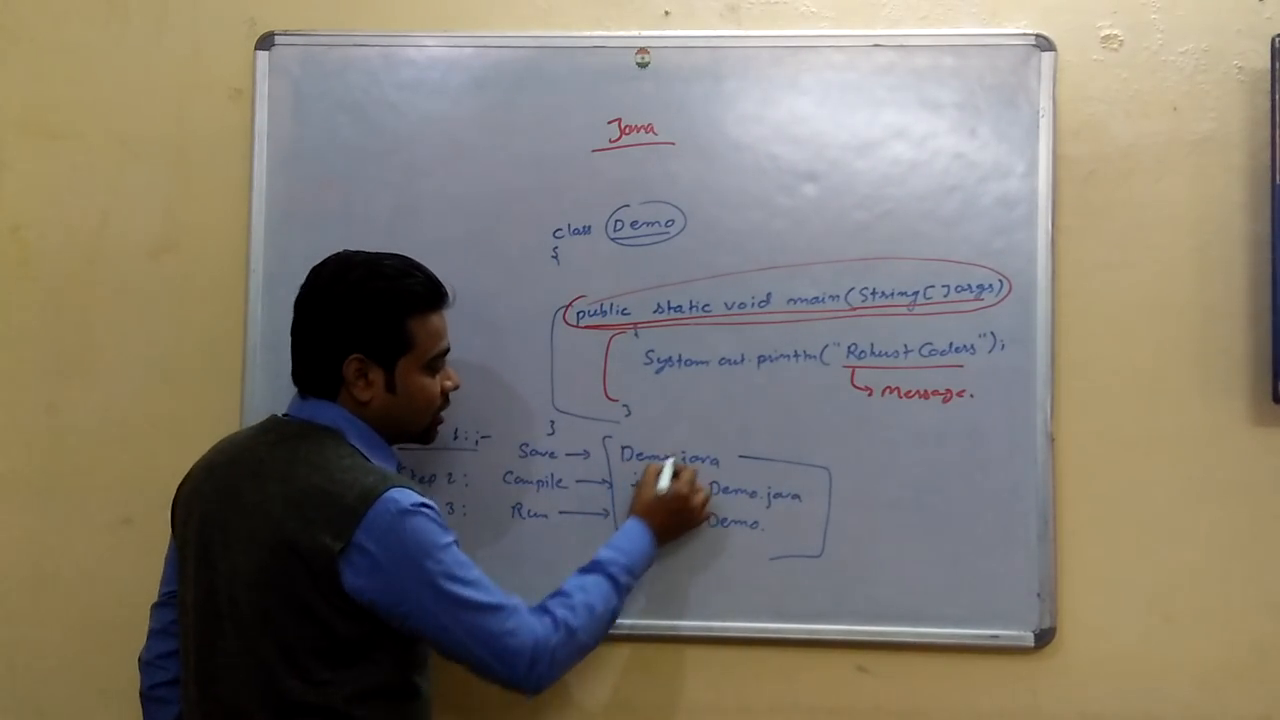 Java
class Demo
{
public static void main(String[]args)
{
System.out.println("Robust Coders");
Message.
}
}
1:;- Save → Demo.java
Step 2: Compile → Demo.java
3: Run → Demo.